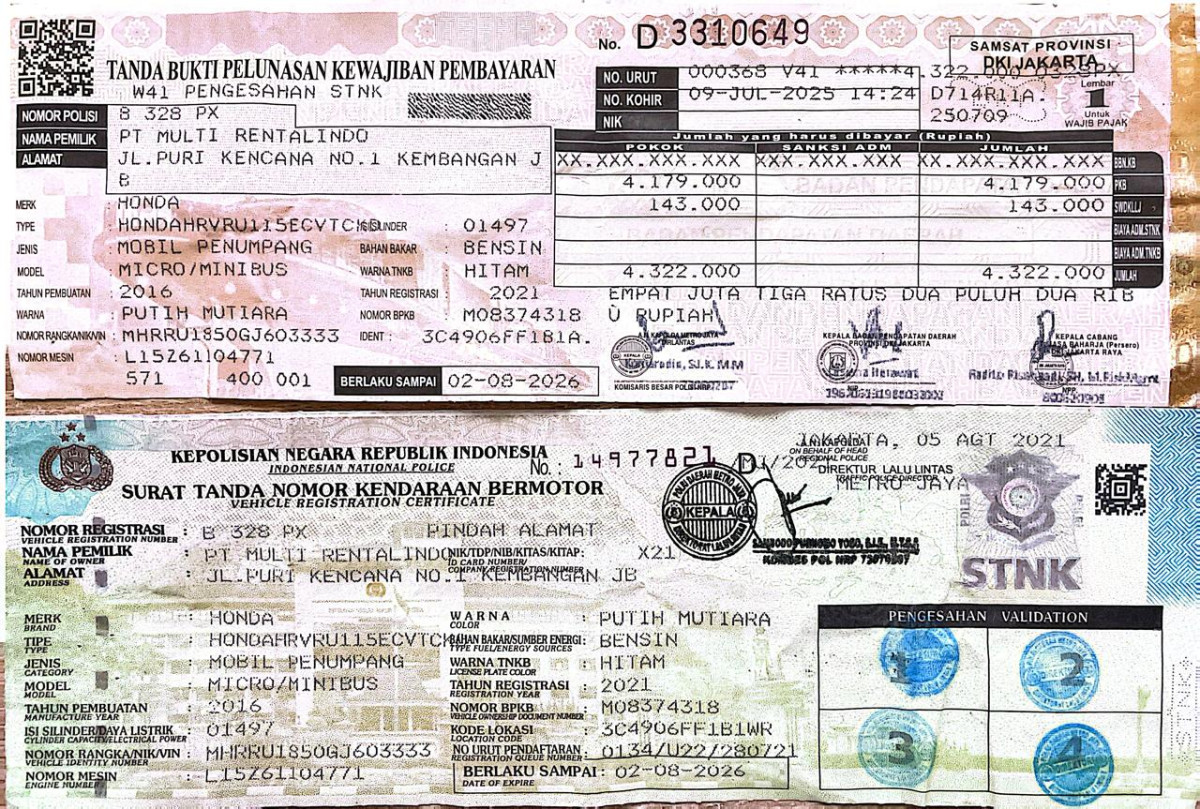 No. D 3310649
SAMSAT PROVINSI
DKI JAKARTA
TANDA BUKTI PELUNASAN KEWAJIBAN PEMBAYARAN
W41 PENGESAHAN STNK
NO. URUT 000368 V41 *****4.322.000
NO. KOHIR 09-JUL-2025 14:24 D714R11A.
NIK 250709
Lembar
1
Untuk
WAJIB PAJAK
NOMOR POLISI B 328 PX
NAMA PEMILIK PT MULTI RENTALINDO
ALAMAT JL.PURI KENCANA NO.1 KEMBANGAN J
B
Jumlah yang harus dibayar (Rupiah)
POKOK SANKSI ADM JUMLAH
XX.XXX.XXX.XXX XXX.XXX.XXX.XXX XX.XXX.XXX.XXX BBN.KB
4.179.000 4.179.000 PKB
143.000 143.000 SWDKLLJ
BIAYA ADM.STNK
BIAYA ADM.TNKB
4.322.000 4.322.000 JUMLAH
EMPAT JUTA TIGA RATUS DUA PULUH DUA RIB
U RUPIAH
MERK : HONDA
TYPE : HONDAHRVRU115ECVTCKD ISI SILINDER : 01497
JENIS : MOBIL PENUMPANG BAHAN BAKAR : BENSIN
MODEL : MICRO/MINIBUS WARNA TNKB : HITAM
TAHUN PEMBUATAN : 2016 TAHUN REGISTRASI : 2021
WARNA : PUTIH MUTIARA NOMOR BPKB : M08374318
NOMOR RANGKA/NIK/VIN : MHRRU1850GJ603333 IDENT : 3C4906FF1B1A.
NOMOR MESIN : L15Z61104771
571 400 001 BERLAKU SAMPAI 02-08-2026
KEPALA BADAN PENDAPATAN DAERAH
PROVINSI DKI JAKARTA
KEPALA CABANG
JASA RAHARJA (Persero)
DKI JAKARTA RAYA
KOMISARIS BESAR POLISI NRP
KEPOLISIAN NEGARA REPUBLIK INDONESIA
INDONESIAN NATIONAL POLICE
No. : 14977821
SURAT TANDA NOMOR KENDARAAN BERMOTOR
VEHICLE REGISTRATION CERTIFICATE
JAKARTA, 05 AGT 2021
A.N KAPOLDA
ON BEHALF OF HEAD
REGIONAL POLICE
DIREKTUR LALU LINTAS
TRAFFIC POLICE DIRECTOR
METRO JAYA
KEPALA
KOMBES POL NRP
STNK
NOMOR REGISTRASI : B 328 PX PINDAH ALAMAT
VEHICLE REGISTRATION NUMBER
NAMA PEMILIK : PT MULTI RENTALINDO NIK/TDP/NIB/KITAS/KITAP: X21
NAME OF OWNER ID CARD NUMBER/
COMPANY REGISTRATION NUMBER
ALAMAT : JL.PURI KENCANA NO.1 KEMBANGAN JB
ADDRESS
MERK : HONDA WARNA : PUTIH MUTIARA
BRAND COLOR
TIPE : HONDAHRVRU115ECVTCKD BAHAN BAKAR/SUMBER ENERGI : BENSIN
TYPE TYPE FUEL/ENERGY SOURCES
JENIS : MOBIL PENUMPANG WARNA TNKB : HITAM
CATEGORY LICENSE PLATE COLOR
MODEL : MICRO/MINIBUS TAHUN REGISTRASI : 2021
MODEL REGISTRATION YEAR
TAHUN PEMBUATAN : 2016 NOMOR BPKB : M08374318
MANUFACTURE YEAR VEHICLE OWNERSHIP DOCUMENT NUMBER
ISI SILINDER/DAYA LISTRIK : 01497 KODE LOKASI : 3C4906FF1B1WR
CYLINDER CAPACITY/ELECTRICAL POWER LOCATION CODE
NOMOR RANGKA/NIK/VIN : MHRRU1850GJ603333 NO URUT PENDAFTARAN : 0134/U22/280721
VEHICLE IDENTITY NUMBER REGISTRATION QUEUE NUMBER
NOMOR MESIN : L15Z61104771 BERLAKU SAMPAI : 02-08-2026
ENGINE NUMBER DATE OF EXPIRE
PENGESAHAN VALIDATION
1 2
3 4